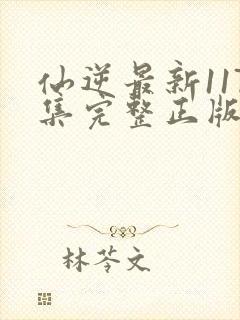 仙逆最新117
集完整正版
林苓文